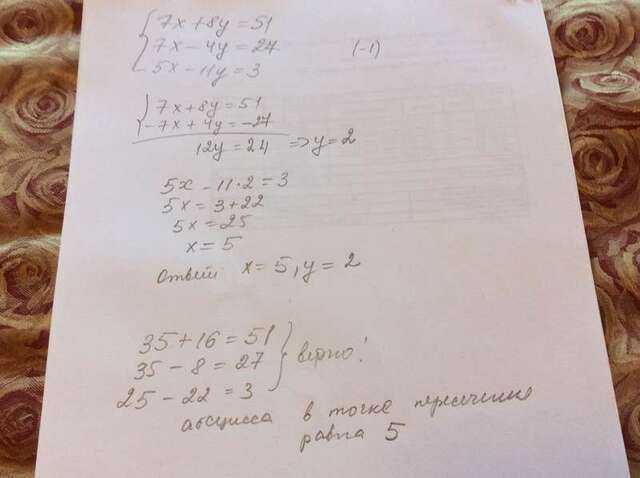 7x+8y=51
7x-4y=27 (-1)
5x-11y=3
7x+8y=51
-7x+4y=-27
12y=24 =>y=2
5x-11·2=3
5x=3+22
5x=25
x=5
ответ x=5, y=2
35+16=51
35-8=27 верно!
25-22=3
абсцисса в точке пересечения
равна 5